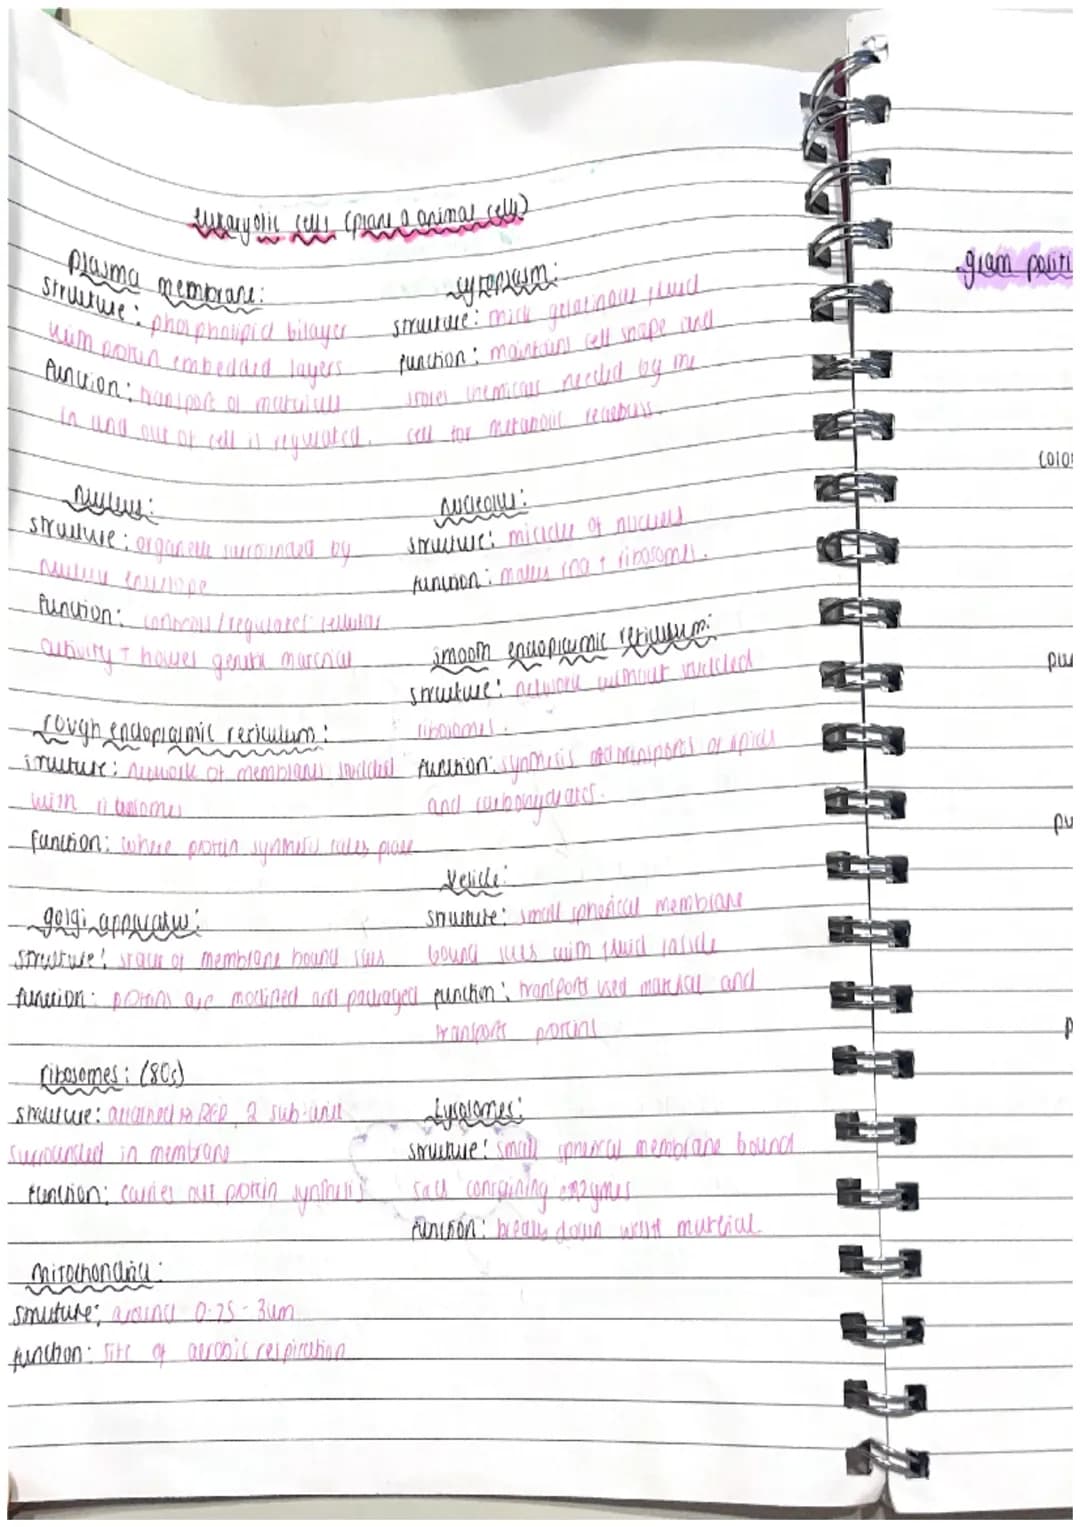 eukaryotic cells (plant & animal cells)
plasma membrane:
structure: phospholipid bilayer
with protein embedded layers
function: transport of
in and out of cell is regulated.
cytoplasm:
structure: thick gelatinous fluid
function: maintains cell shape and
stores chemicals needed by the
cell for metabolic
nucleus:
structure: organelle surrounded by
nuclear envelope
function: controls/regulates cellular
activity + houses genetic material
nucleolus:
structure: middle of nucleus
function: makes rna + ribosomes.
smooth endoplasmic reticulum:
structure: network without studded
ribosomes.
function: synthesis and transports of lipids
and carbohydrates.
rough endoplasmic reticulum:
structure: network of membranes studded
with ribosomes
function: where protein synthesis takes place
vesicle:
structure: small spherical membrane
bound sacs with fluid inside
function: transports used material and
transports proteins
golgi apparatus:
structure: stack of membrane bound sacs
function: proteins are modified and packaged
ribosomes: (80s)
structure: attached to RER, 2 sub-unit
surrounded in membrane
function: carries out protein synthesis
lysosomes:
structure: small spherical membrane bound
sacs containing enzymes
function: breaks down waste material
mitochondria:
structure: around 0.25 - 3um
function: site of aerobic respiration
gram positi
color
pu